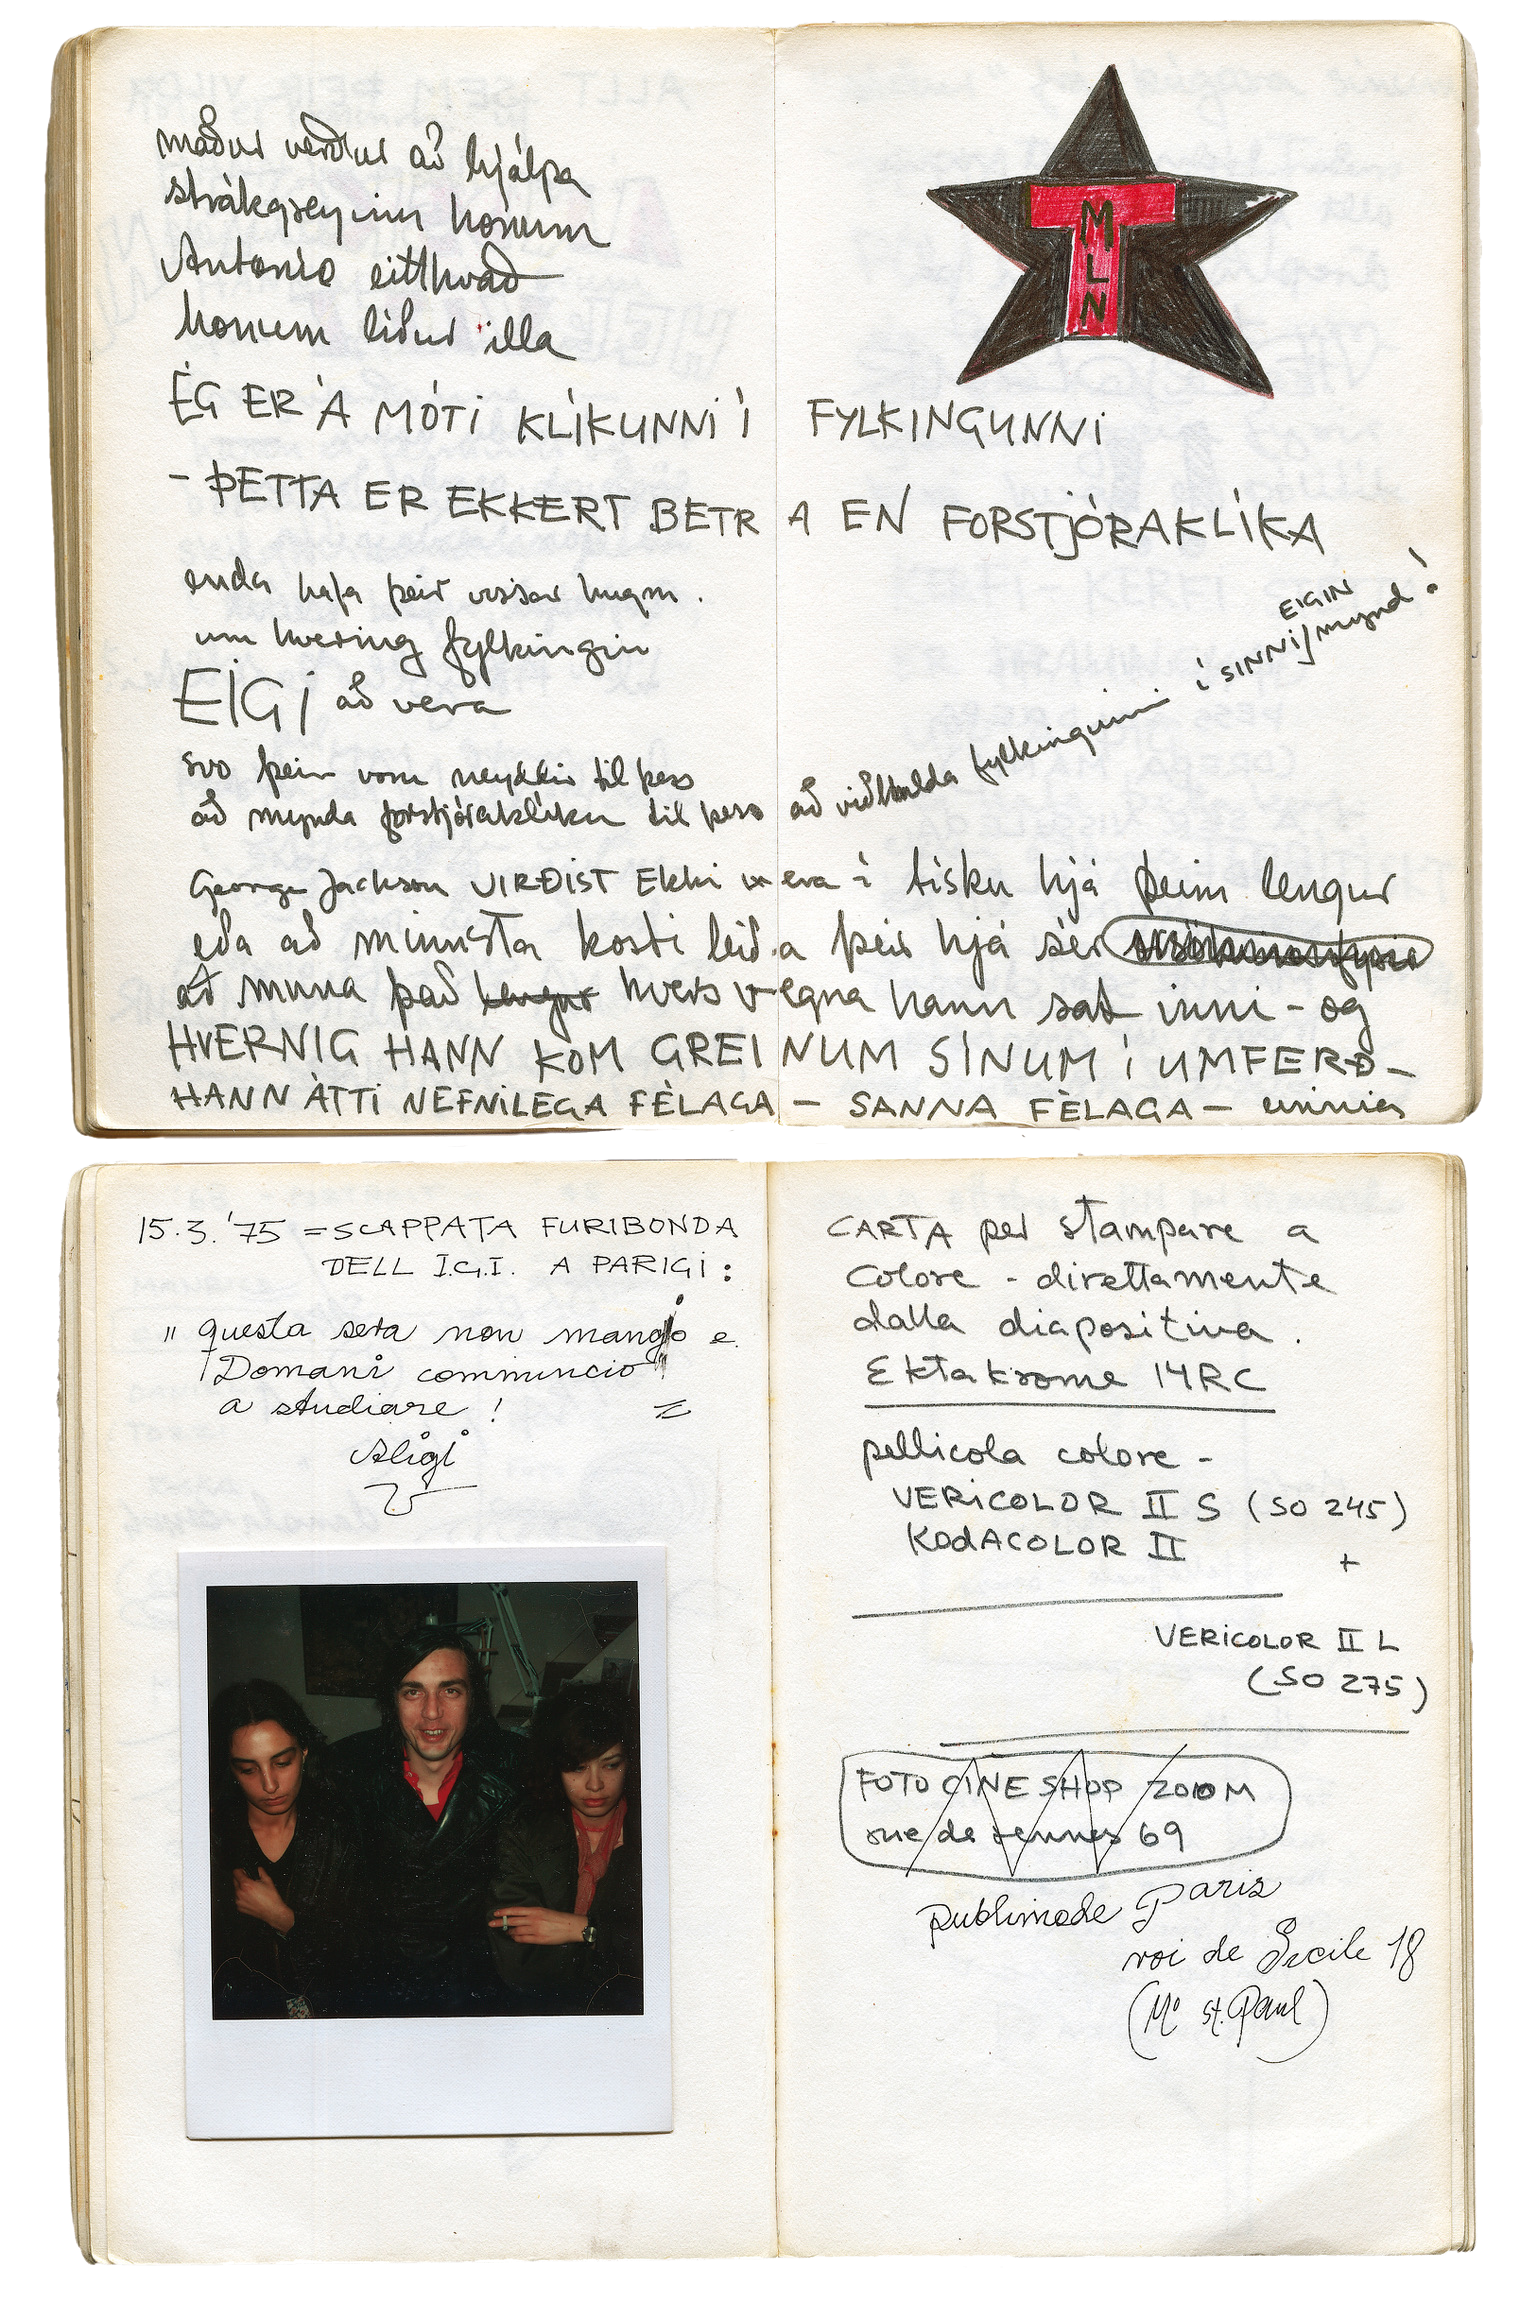 maður verður að hjálpa
strákgreyinu honum
Antonio eitthvað
honum líður illa
M
L
N
ÉG ER Á MÓTI KLÍKUNNI Í FYLKINGUNNI
- ÞETTA ER EKKERT BETRA EN FORSTJÓRAKLÍKA
enda hafa þeir vissar hugm.
um hvering fylkingin
EIGI að vera
svo þeir voru neyddir til þess
að mynda forstjóraklíku til þess að viðhalda fylkingunni í SINNI EIGIN mynd!
George Jackson VIRÐIST EKKI vera í tísku hjá þeim lengur
eða að minnsta kosti leiða þeir hjá sér
að muna það lengur hvers vegna hann sat inni - og
HVERNIG HANN KOM GREINUM SÍNUM Í UMFERÐ -
HANN ÁTTI NEFNILEGA FÈLAGA - SANNA FÈLAGA -
15.3.'75 = SCAPPATA FURIBONDA
DELL I.G.I. A PARIGI:
"questa sera non mangio e
Domani comminncio
a studiare!
Aligi
CARTA per stampare a
colore - direttamente
dalla diapositiva.
Ektakrome 14RC
pellicola colore -
VERICOLOR II S (SO 245)
KODACOLOR II +
VERICOLOR II L
(SO 275)
FOTO CINE SHOP ZOOM
rue de rennes 69
Publimode Paris
roi de Sicile 18
(Mo St. Paul)